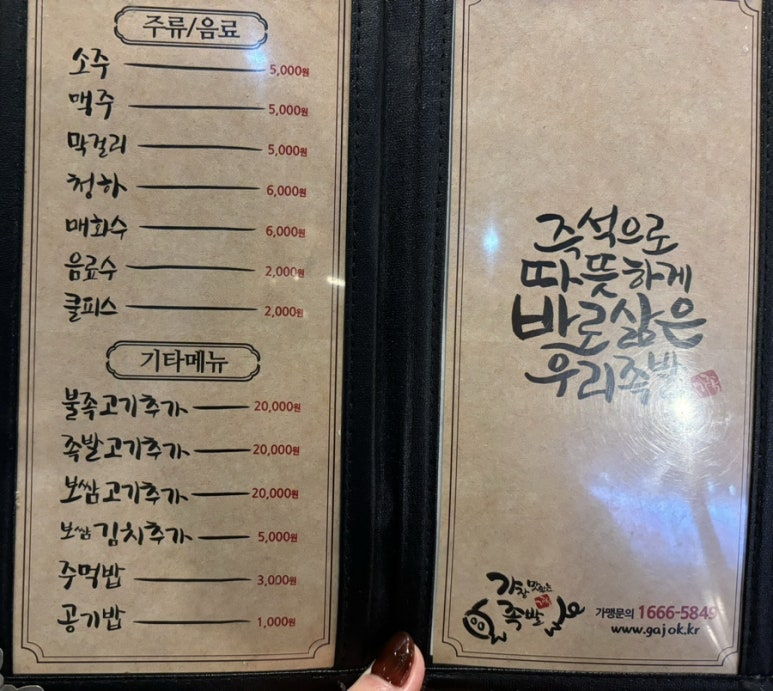 주류/음료
소주 5,000원
맥주 5,000원
막걸리 5,000원
청하 6,000원
매화수 6,000원
음료수 2,000원
쿨피스 2,000원
기타메뉴
불족고기추가 20,000원
족발고기추가 20,000원
보쌈고기추가 20,000원
보쌈김치추가 5,000원
주먹밥 3,000원
공기밥 1,000원
즉석으로
따뜻하게
바로삶은
우리족발
가장맛있는
족발
가맹문의 1666-5849
www.gajok.kr